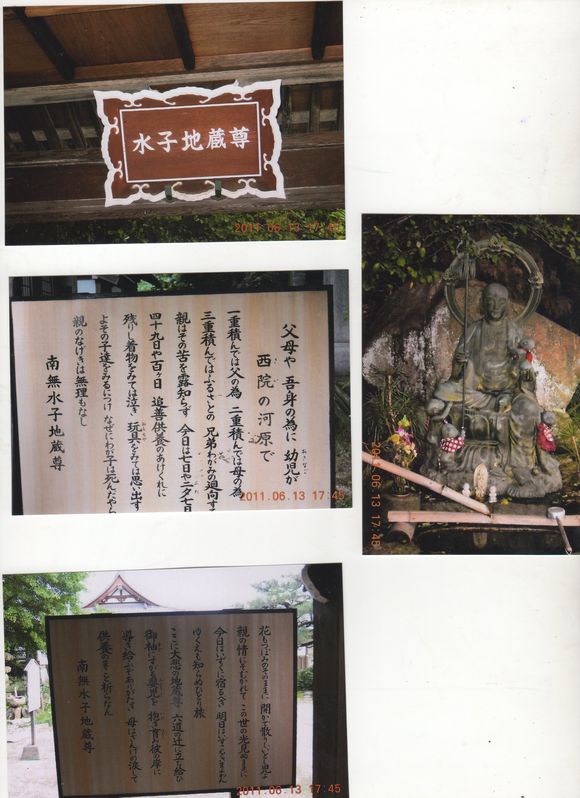 水子地蔵尊
2011.06.13 17:45
父母や 吾身の為に 幼児が
西院の河原で
一重積んでは父の為 二重積んでは母の為
三重積んではふるさとの 兄弟わがみの廻向する
親はその苦を露知らず 今日は七日や二夕七日
四十九日や百ヶ日 追善供養のあけくれに
残りし着物をみては泣き 玩具をみては思い出す
よその子達をみるにつけ なぜにわが子は死んだやら
親のなげきは無理もなし
南無水子地蔵尊
2011.06.13 17:45
2011.06.13 17:45
親の情にそむかれて この世の光見ぬままに
今日はいずくに宿るべき 明日は
ゆくえも知らぬひとり旅
ここに大悲の地蔵尊 六道の辻に立ち給ひ
御袖にすがる
導き給ふぞありがたき 母は
供養のまこと祈らなん
南無水子地蔵尊
2011.06.13 17:45